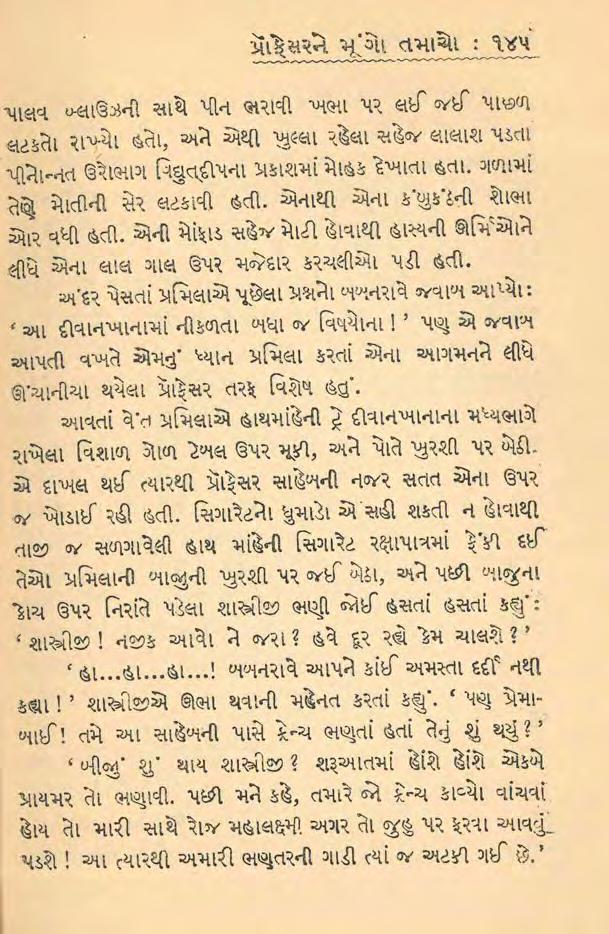 પ્રૉફેસરને મૂંગો તમાચો : ૧૪૫
પાલવ બ્લાઉઝની સાથે પીન ભરાવી ખભા પર લઈ જઈ પાછળ
લટકતો રાખ્યો હતો, અને એથી ખુલ્લા રહેલા સહેજ લાલાશ પડતા
પીનોન્નત ઉરોભાગ વિદ્યુત્‌દીપના પ્રકાશમાં મોહક દેખાતા હતા. ગળામાં
તેણે મોતીની સેર લટકાવી હતી. એનાથી એના કંબુકંઠની શોભા
ઓર વધી હતી. એની મોંફાડ સહેજ મોટી હોવાથી હાસ્યની ઊર્મિઓને
લીધે એના લાલ ગાલ ઉપર મજેદાર કરચલીઓ પડી હતી.
અંદર પેસતાં પ્રમિલાએ પૂછેલા પ્રશ્નનો બબનરાવે જવાબ આપ્યો:
‘ આ દીવાનખાનામાં નીકળતા બધા જ વિષયોના ! ’ પણ એ જવાબ
આપતી વખતે એમનું ધ્યાન પ્રમિલા કરતાં એના આગમનને લીધે
ઊંચાનીચા થયેલા પ્રૉફેસર તરફ વિશેષ હતું.
આવતાં વેંત પ્રમિલાએ હાથમાંહેની ટ્રે દીવાનખાનાના મધ્યભાગે
રાખેલા વિશાળ ગોળ ટેબલ ઉપર મૂકી, અને પોતે ખુરશી પર બેઠી.
એ દાખલ થઈ ત્યારથી પ્રૉફેસર સાહેબની નજર સતત એના ઉપર
જ ખોડાઈ રહી હતી. સિગારેટનો ધુમાડો એ સહી શકતી ન હોવાથી
તાજી જ સળગાવેલી હાથ માંહેની સિગારેટ રક્ષાપાત્રમાં ફેંકી દઈ
તેઓ પ્રમિલાની બાજુની ખુરશી પર જઈ બેઠા, અને પછી બાજુના
કોચ ઉપર નિરાંતે પડેલા શાસ્ત્રીજી ભણી જોઈ હસતાં હસતાં કહ્યું :
‘ શાસ્ત્રીજી ! નજીક આવો ને જરા ? હવે દૂર રહ્યે કેમ ચાલશે ? ’
‘ હા...હા...હા...! બબનરાવે આપને કાંઈ અમસ્તા દર્દી નથી
કહ્યા ! ’ શાસ્ત્રીજીએ ઊભા થવાની મહેનત કરતાં કહ્યું. ‘ પણ પ્રેમા-
બાઈ ! તમે આ સાહેબની પાસે ફ્રેન્ચ ભણતાં હતાં તેનું શું થયું ? ’
‘ બીજું શું થાય શાસ્ત્રીજી ? શરૂઆતમાં હોંશે હોંશે એકબે
પ્રાયમર તો ભણાવી. પછી મને કહે, તમારે જો ફ્રેન્ચ કાવ્યો વાંચવાં
હોય તો મારી સાથે રોજ મહાલક્ષ્મી અગર તો જુહુ પર ફરવા આવવું
પડશે ! આ ત્યારથી અમારી ભણતરની ગાડી ત્યાં જ અટકી ગઈ છે.’